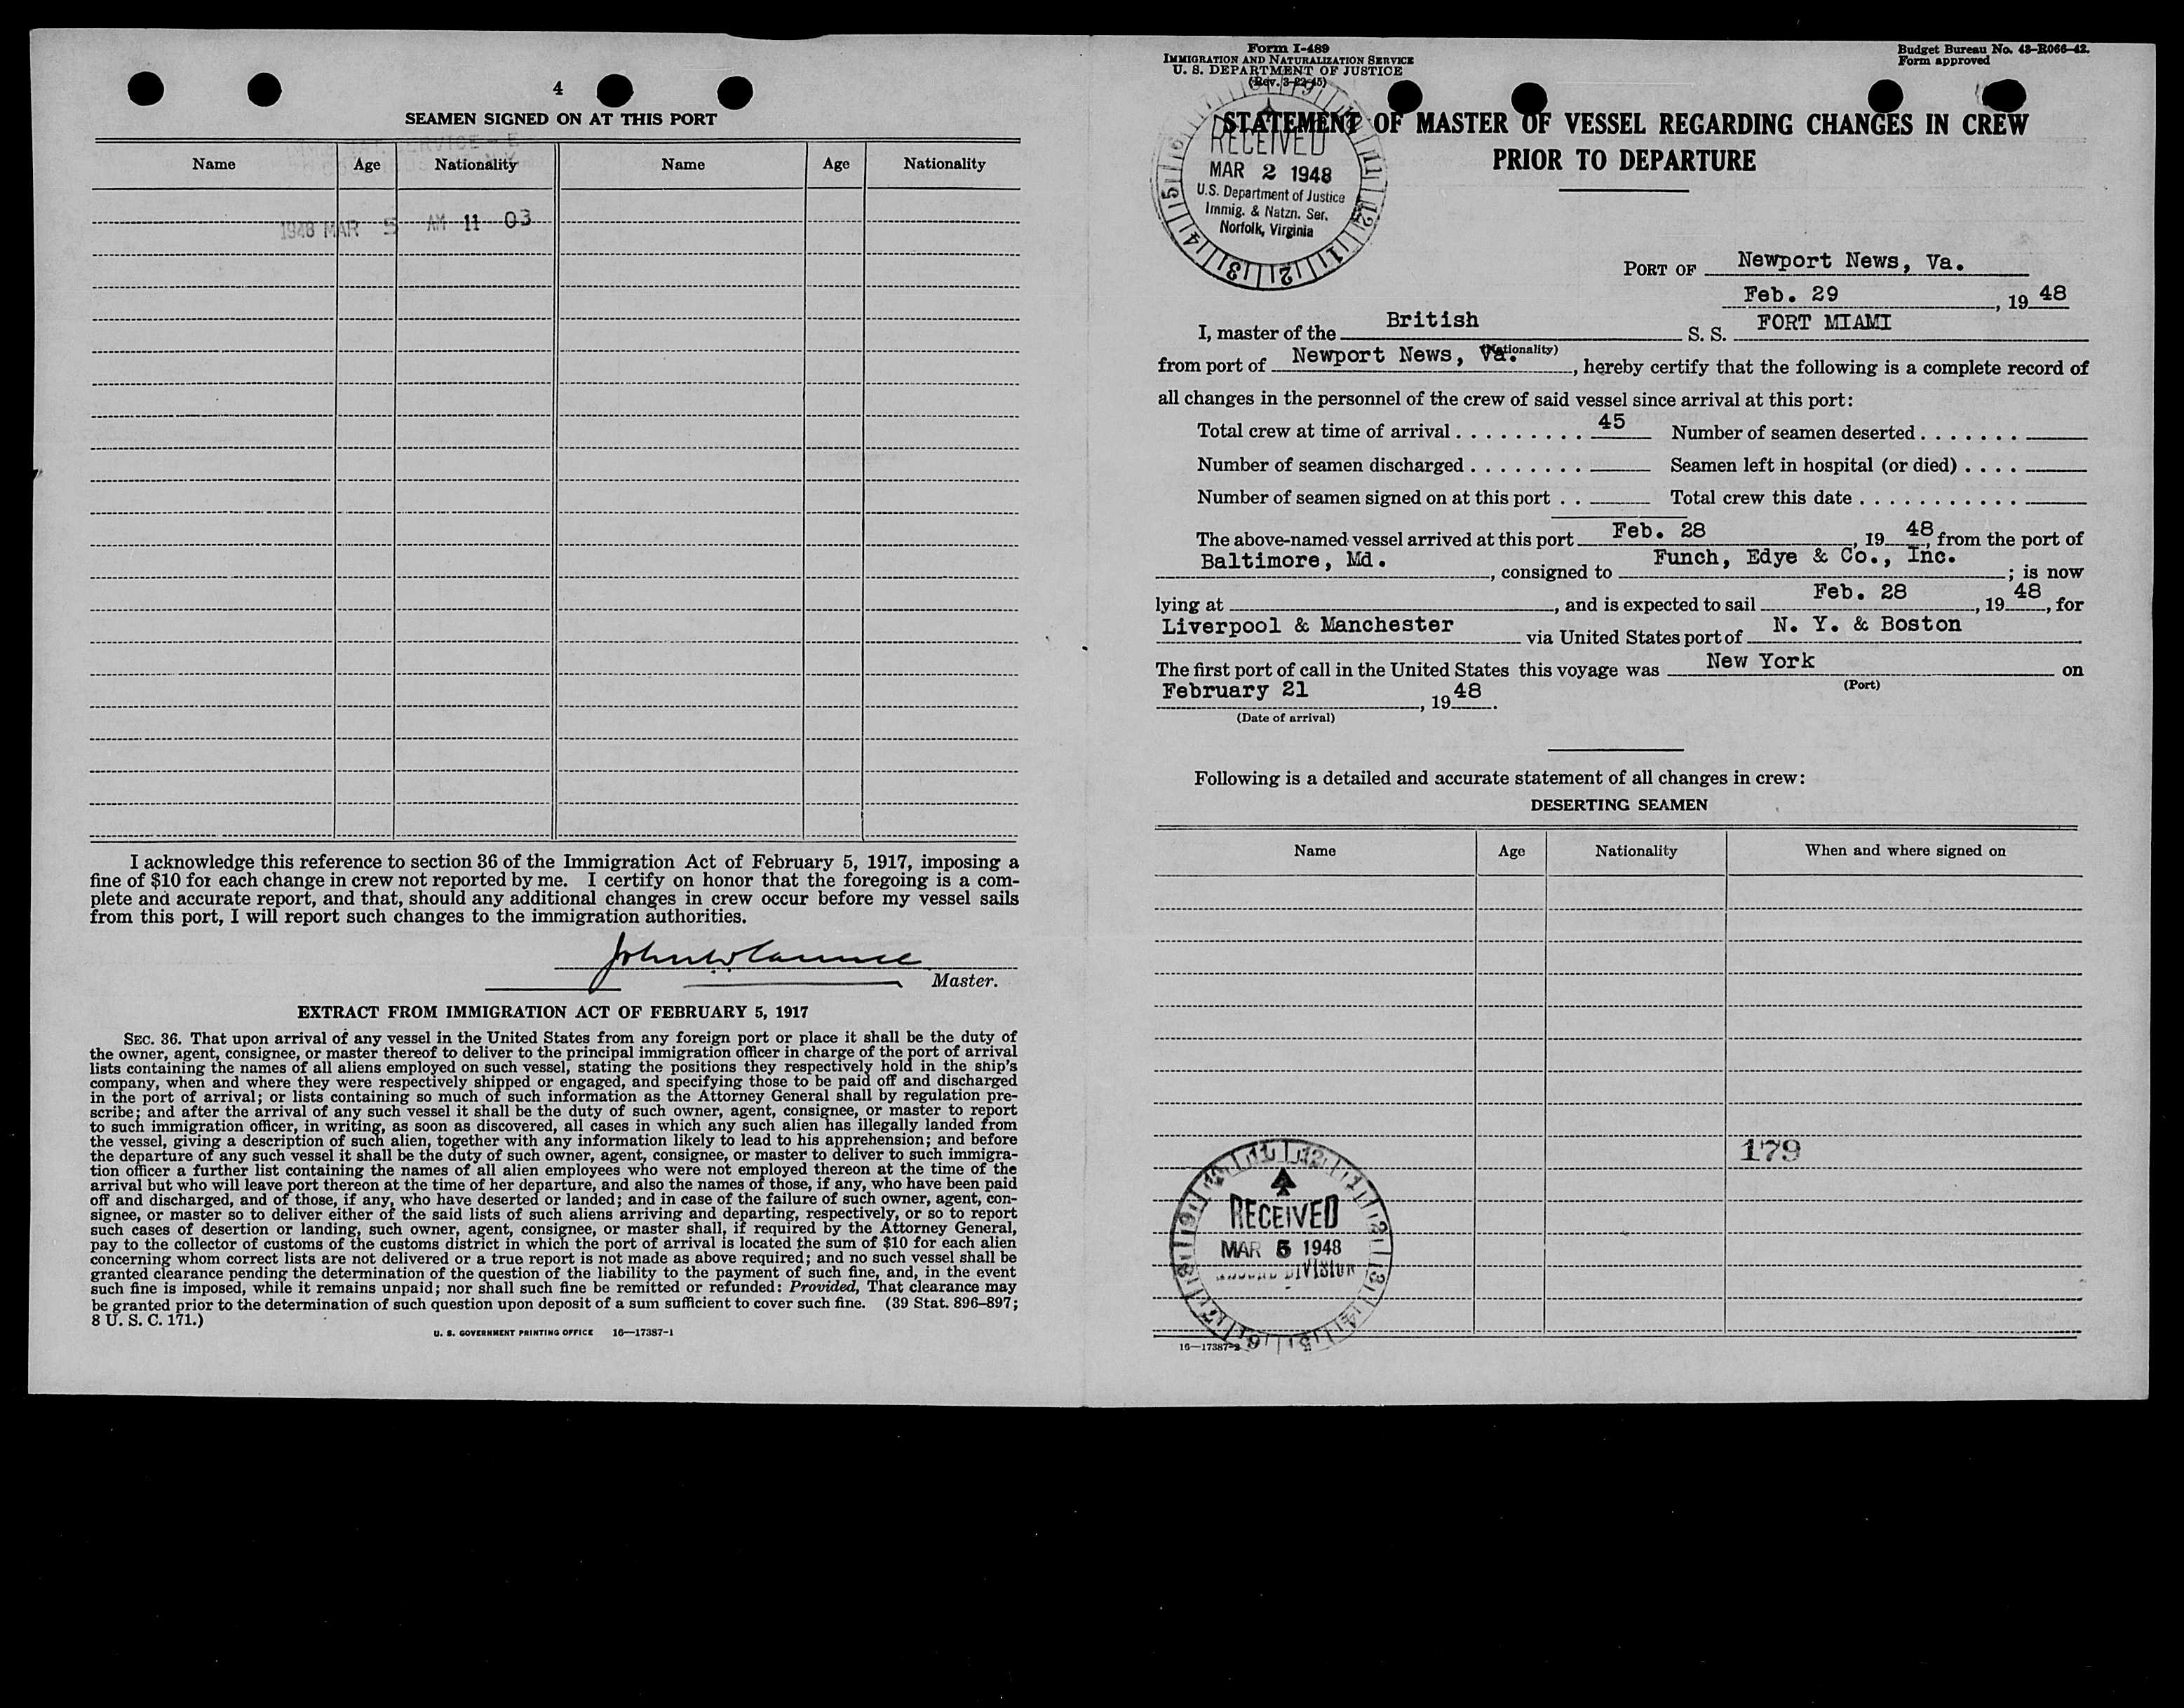 4
SEAMEN SIGNED ON AT THIS PORT
Name Age Nationality Name Age Nationality
1948 MAR 5 AM 11 03
I acknowledge this reference to section 36 of the Immigration Act of February 5, 1917, imposing a
fine of $10 for each change in crew not reported by me. I certify on honor that the foregoing is a com-
plete and accurate report, and that, should any additional changes in crew occur before my vessel sails
from this port, I will report such changes to the immigration authorities.
John W
Master.
EXTRACT FROM IMMIGRATION ACT OF FEBRUARY 5, 1917
SEC. 36. That upon arrival of any vessel in the United States from any foreign port or place it shall be the duty of
the owner, agent, consignee, or master thereof to deliver to the principal immigration officer in charge of the port of arrival
lists containing the names of all aliens employed on such vessel, stating the positions they respectively hold in the ship's
company, when and where they were respectively shipped or engaged, and specifying those to be paid off and discharged
in the port of arrival; or lists containing so much of such information as the Attorney General shall by regulation pre-
scribe; and after the arrival of any such vessel it shall be the duty of such owner, agent, consignee, or master to report
to such immigration officer, in writing, as soon as discovered, all cases in which any such alien has illegally landed from
the vessel, giving a description of such alien, together with any information likely to lead to his apprehension; and before
the departure of any such vessel it shall be the duty of such owner, agent, consignee, or master to deliver to such immigra-
tion officer a further list containing the names of all alien employees who were not employed thereon at the time of the
arrival but who will leave port thereon at the time of her departure, and also the names of those, if any, who have been paid
off and discharged, and of those, if any, who have deserted or landed; and in case of the failure of such owner, agent, con-
signee, or master so to deliver either of the said lists of such aliens arriving and departing, respectively, or so to report
such cases of desertion or landing, such owner, agent, consignee, or master shall, if required by the Attorney General,
pay to the collector of customs of the customs district in which the port of arrival is located the sum of $10 for each alien
concerning whom correct lists are not delivered or a true report is not made as above required; and no such vessel shall be
granted clearance pending the determination of the question of the liability to the payment of such fine, and, in the event
such fine is imposed, while it remains unpaid; nor shall such fine be remitted or refunded: Provided, That clearance may
be granted prior to the determination of such question upon deposit of a sum sufficient to cover such fine. (39 Stat. 896–897;
8 U. S. C. 171.)
U. S. GOVERNMENT PRINTING OFFICE 16—17387-1
Form I-489
IMMIGRATION AND NATURALIZATION SERVICE
U. S. DEPARTMENT OF JUSTICE
(Rev. 3-22-45)
Budget Bureau No. 43-R066-42.
Form approved
STATEMENT OF MASTER OF VESSEL REGARDING CHANGES IN CREW
PRIOR TO DEPARTURE
RECEIVED
MAR 2 1948
U.S. Department of Justice
Immig. & Natzn. Ser.
Norfolk, Virginia
PORT OF Newport News, Va.
Feb. 29, 19 48
I, master of the British S. S. FORT MIAMI
(Nationality)
from port of Newport News, Va., hereby certify that the following is a complete record of
all changes in the personnel of the crew of said vessel since arrival at this port:
Total crew at time of arrival . . . . . . . . . 45 Number of seamen deserted . . . . . . .
Number of seamen discharged . . . . . . . . Seamen left in hospital (or died) . . . .
Number of seamen signed on at this port . . Total crew this date . . . . . . . . . . .
The above-named vessel arrived at this port Feb. 28, 19 48, from the port of
Baltimore, Md., consigned to Funch, Edye & Co., Inc.; is now
lying at , and is expected to sail Feb. 28, 19 48, for
Liverpool & Manchester via United States port of N. Y. & Boston
The first port of call in the United States this voyage was New York on
(Port)
February 21, 19 48.
(Date of arrival)
Following is a detailed and accurate statement of all changes in crew:
DESERTING SEAMEN
Name Age Nationality When and where signed on
179
RECEIVED
MAR 5 1948
DIVISION
16—17387-2